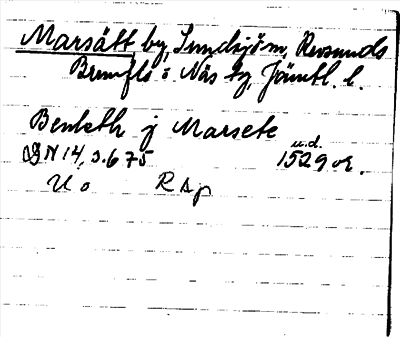 Marsätt by, Sundsjö sn, Revsunds
Brunflo o. Näs tg, Jämtl. l.
Benketh j Marsete
DN 14, s. 675
u.d.
1529 or.
U o R s p